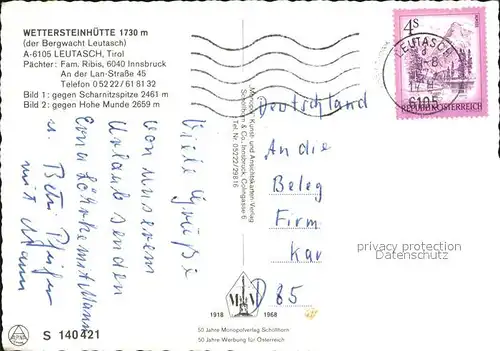 WETTERSTEINHÜTTE 1730 m
(der Bergwacht Leutasch)
A-6105 LEUTASCH, Tirol
Pächter: Fam. Ribis, 6040 Innsbruck
An der Lan-Straße 45
Telefon 05222/618132
Bild 1: gegen Scharnitzspitze 2461 m
Bild 2: gegen Hohe Munde 2659 m
Viele Grüße
von unserem
Urlaub senden
mit Mann
u.
mit Mann
S 140421
Kunst- und Ansichtskarten-Verlag
& Co., Innsbruck,
Tel. Nr. 05222/29816
1918 1968
50 Jahre Monopolverlag Schöllhorn
50 Jahre Werbung für Österreich
4S
LEUTASCH
6105
REPUBLIK ÖSTERREICH
Deutschland
An die
Beleg
Firm
Kar
D 85
privacy protection
Datenschutz